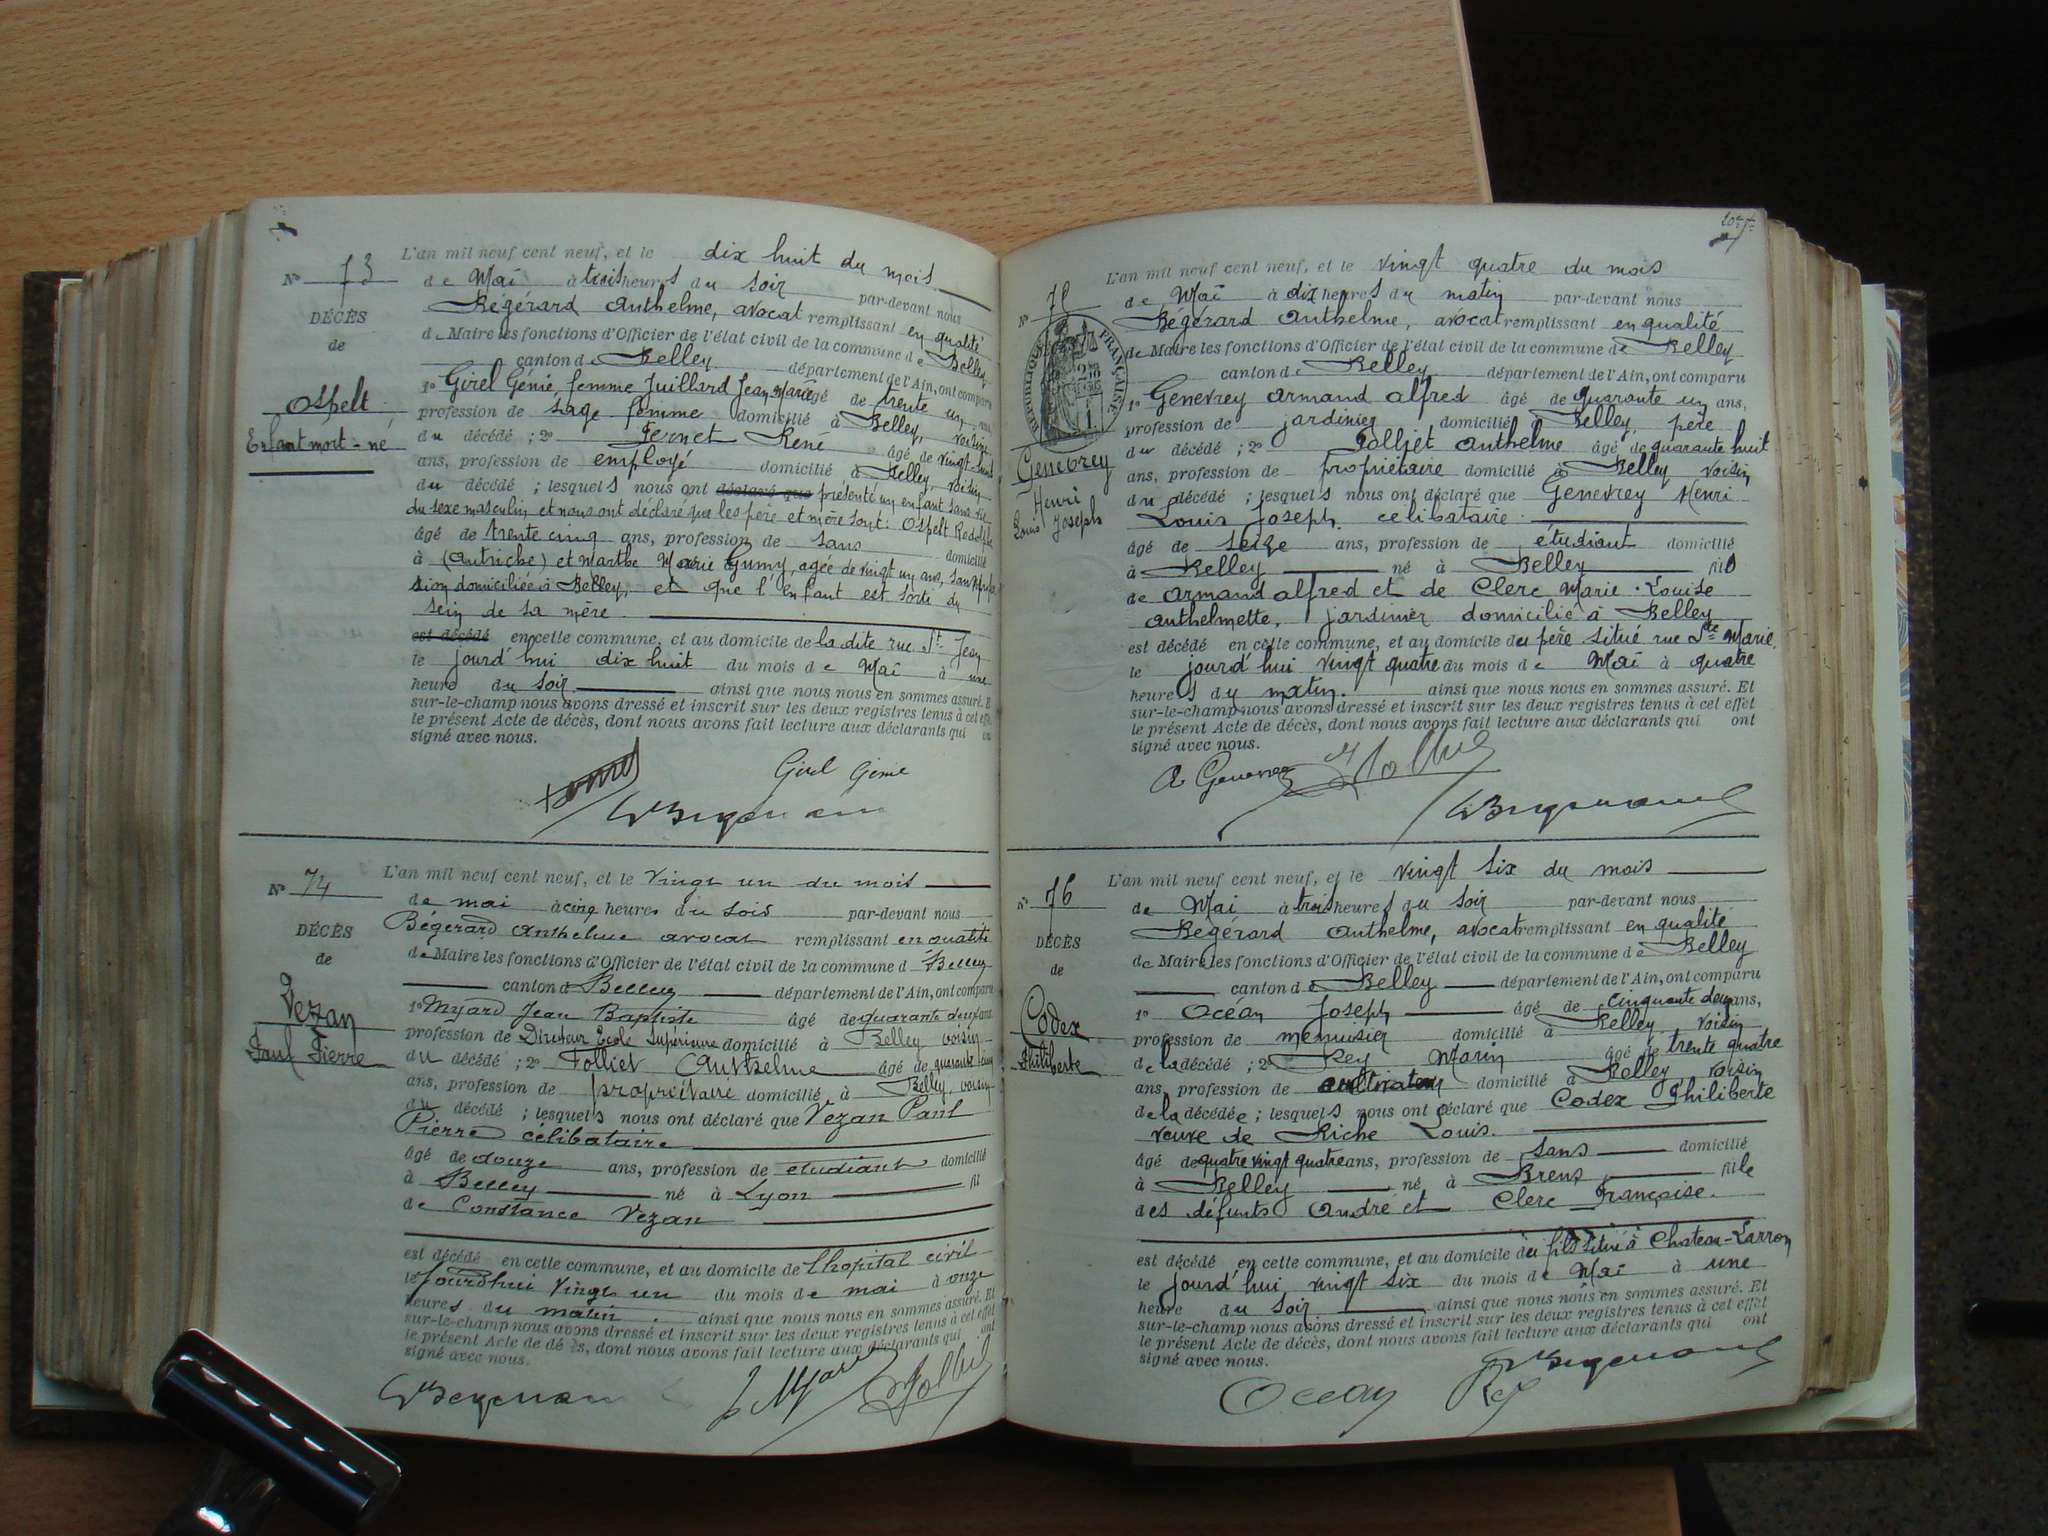 L'an mil neuf cent neuf, et le dix huit du mois
Nº 73
de Maï à trois heures du soir par-devant nous
Bégérard Anthelme, avocat remplissant en qualité
DÉCÈS
de
de Maire les fonctions d'Officier de l'état civil de la commune de Belley
canton de Belley département de l'Ain, ont comparu
1º Girel Génie femme Juillard Jean Marie âgé de trente un ans
Ospelt
Enfant mort-né
profession de sage femme domicilié à Belley, voisine
du décédé ; 2º Pernet René âgé de vingt huit
ans, profession de employé domicilié à Belley voisin
du décédé ; lesquels nous ont déclaré que présenté un enfant sans vie
du sexe masculin et nous ont déclaré que les père et mère sont : Ospelt Rodolphe
âgé de trente cinq ans, profession de sans domicilié
à (Autriche) et Marthe Marie Gumy, agée de vingt un ans, sans profes
sion domiciliée à Belley, et que l'enfant est sorti du
sein de sa mère
est décédé en cette commune, et au domicile de la dite rue St. Jean
le jourd'hui dix huit du mois de Maï à une
heure du soir ainsi que nous nous en sommes assuré. Et
sur-le-champ nous avons dressé et inscrit sur les deux registres tenus à cet effet
le présent Acte de décès, dont nous avons fait lecture aux déclarants qui ont
signé avec nous.
Girel Génie
L'an mil neuf cent neuf, et le vingt un du mois
Nº 74
de mai à cinq heures du soir par-devant nous
Bégerard Anthelme avocat remplissant en qualité
DÉCÈS
de
de Maire les fonctions d'Officier de l'état civil de la commune d Belley
canton d Belley département de l'Ain, ont comparu
Vezan
Paul Pierre
1º Myard Jean Baptiste âgé de quarante deux ans
profession de Directeur Ecole Supérieure domicilié à Belley voisin
du décédé ; 2º Folliet Anthelme âgé de quarante huit
ans, profession de propriétaire domicilié à Belley, voisin
du décédé ; lesquels nous ont déclaré que Vezan Paul
Pierre célibataire
âgé de douze ans, profession de étudiant domicilié
à Belley né à Lyon fil
de Constance Vezan
est décédé en cette commune, et au domicile de l'hopital civil
le jourdhui vingt un du mois de mai à onze
heures du matin. ainsi que nous nous en sommes assuré. Et
sur-le-champ nous avons dressé et inscrit sur les deux registres tenus à cet effet
le présent Acte de décès, dont nous avons fait lecture aux déclarants qui ont
signé avec nous.
J. Myard Folliet
L'an mil neuf cent neuf, et le vingt quatre du mois
Nº 75
de Maï à dix heures du matin par-devant nous
Bégérard Anthelme, avocat remplissant en qualité
RÉPUBLIQUE FRANÇAISE
de Maire les fonctions d'Officier de l'état civil de la commune de Belley
canton de Belley département de l'Ain, ont comparu
1º Genevrey Armand Alfred âgé de quarante un ans,
profession de jardinier domicilié Belley, père
du décédé ; 2º Folliet Anthelme âgé de quarante huit
Genevrey
Henri
Louis Joseph
ans, profession de propriétaire domicilié à Belley voisin
du décédé ; lesquels nous ont déclaré que Genevrey Henri
Louis Joseph. celibataire
âgé de seize ans, profession de étudiant domicilié
à Belley né à Belley fils
de Armand Alfred et de Clerc Marie-Louise
Anthelmette, jardinier domicilié à Belley
est décédé en cette commune, et au domicile du père situé rue Ste Marie
le jourd'hui vingt quatre du mois de Maï à quatre
heures du matin. ainsi que nous nous en sommes assuré. Et
sur-le-champ nous avons dressé et inscrit sur les deux registres tenus à cet effet
le présent Acte de décès, dont nous avons fait lecture aux déclarants qui ont
signé avec nous.
A Genevrey Folliet
L'an mil neuf cent neuf, et le vingt six du mois
Nº 76
de Mai à trois heures du soir par-devant nous
Bégérard Anthelme, avocat remplissant en qualité
DÉCÈS
de
de Maire les fonctions d'Officier de l'état civil de la commune de Belley
canton de Belley département de l'Ain, ont comparu
Codex
Philiberte
1º Océan Joseph âgé de cinquante deux ans,
profession de menuisier domicilié à Belley voisin
de la décédé ; 2º Rey Marin âgé de trente quatre
ans, profession de cultivateur domicilié à Belley, voisin
de la décédée ; lesquels nous ont déclaré que Codex Philiberte
veuve de Riche Louis.
âgé de quatre vingt quatre ans, profession de sans domicilié
à Belley né à Brens fille
des défunts André et Clerc Françoise.
est décédé en cette commune, et au domicile du fils situé à Chateau-Larron
le jourd'hui vingt six du mois de Maï à une
heure du soir ainsi que nous nous en sommes assuré. Et
sur-le-champ nous avons dressé et inscrit sur les deux registres tenus à cet effet
le présent Acte de décès, dont nous avons fait lecture aux déclarants qui ont
signé avec nous.
Océan Rey